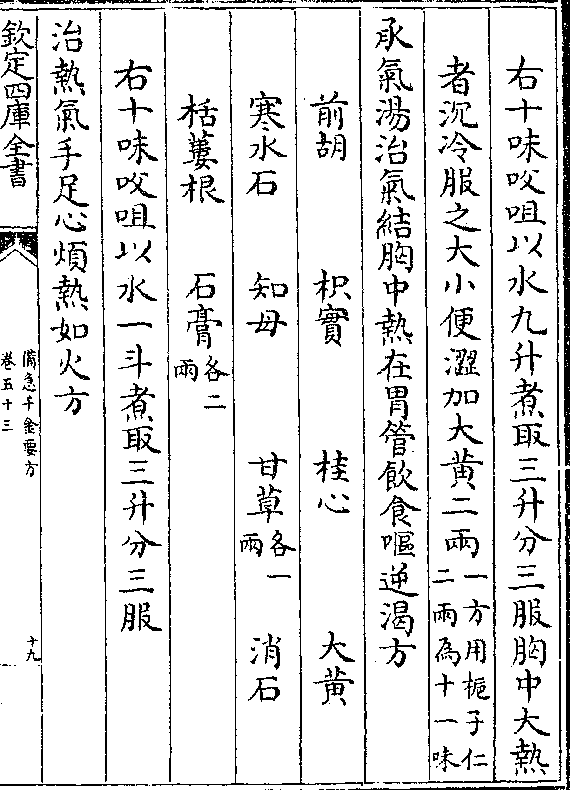 右十味㕮咀以水九升煮取三升分三服胸中大熱
者沉冷服之大小便澀加大黄二兩一方用梔子仁二兩為十一味
承氣湯治氣結胸中熱在胃管飲食嘔逆渴方
前胡 枳實 桂心 大黄
寒水石 知母 甘草各一兩 消石
栝蔞根 石膏各二兩
右十味㕮咀以水一斗煮取三升分三服
治熱氣手足心煩熱如火方
欽定四庫全書
備急千金要方
卷五十三
十九